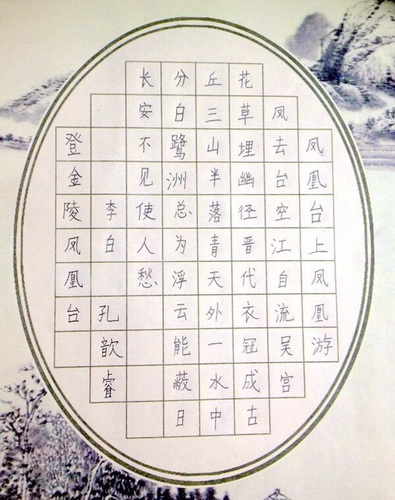 凤凰台上凤凰游
凤去台空江自流吴宫
花草埋幽径晋代衣冠成古
丘三山半落青天外一水中
分白鹭洲总为浮云能蔽日
长安不见使人愁
李白 孔歆睿
登金陵凤凰台